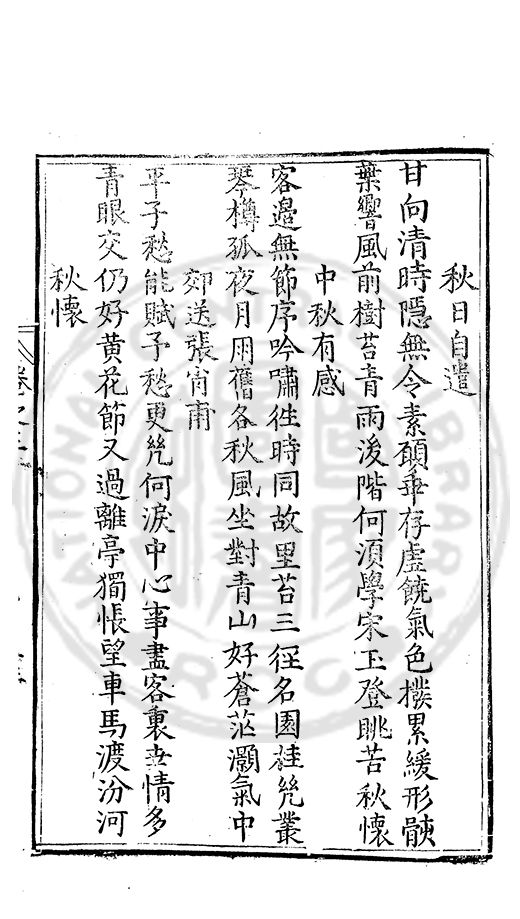 秋日自遣
甘向清時隱無令素願乖存虛饒氣色撥累緩形骸
葉響風前樹苔青雨後階何須學宋玉登眺苦秋懷
中秋有感
客邊無節序吟嘯往時同故里苔三徑名園桂幾叢
琴樽孤夜月用舊各秋風坐對青山好蒼茫灝氣中
郊送張肖甫
平子愁能賦予愁更幾何淚中心事盡客裏世情多
青眼交仍好黃花節又過離亭獨悵望車馬渡汾河
秋懷
卷之三